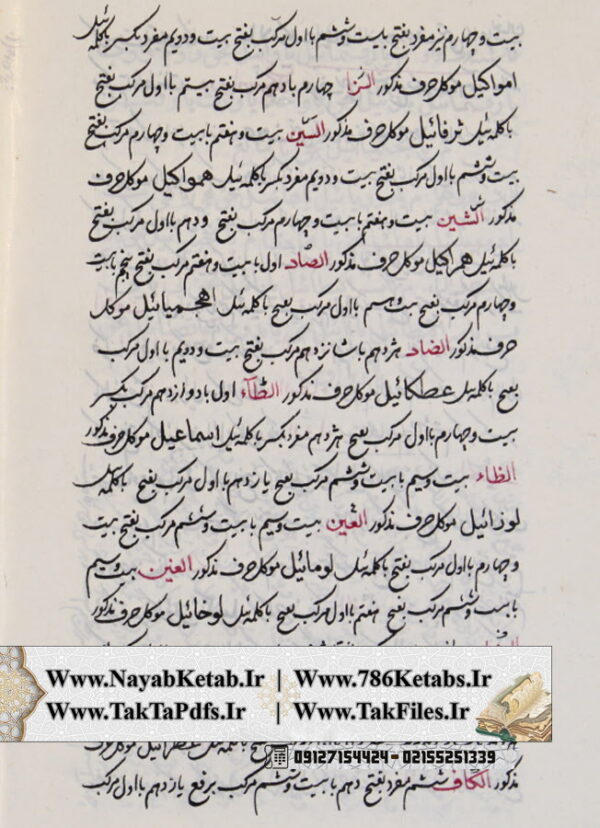 بیست و چهارم نیز مفرد بفتح بابیست و ششم با اول مرکب بفتح بیست و دویم مفرد بکسر با کلمه ئیل
امواکیل موکل حرف مذکور الزا چهارم با دهم مرکب بفتح بیستم با اول مرکب بفتح
با کلمه ئیل ثرفائیل موکل حرف مذکور السین بیست و هفتم با بیست و چهارم مرکب بفتح
بیست و ششم با اول مرکب بفتح بیست و دویم مفرد بکسر با کلمه ئیل همواکیل موکل حرف
مذکور الشین بیست و هفتم با بیست و چهارم مرکب بفتح و دهم با اول مرکب بفتح
با کلمه ئیل همراکیل موکل حرف مذکور الصاد اول با بیست و هفتم مرکب بفتح پنجم بابیت
و چهارم مرکب بفتح بیست و هسم با اول مرکب بفتح با کلمه ئیل اهجمیائیل موکل
حرف مذکور الضاد هژدهم با شانزدهم مرکب بفتح بیست و دویم با اول مرکب
بفتح با کلمه ئیل عطکائیل موکل حرف مذکور الطاء اول با دوازدهم مرکب بکسر
بیست و چهارم با اول مرکب بفتح هژدهم مفرد بکسر با کلمه ئیل اسماعیل موکل حرف مذکور
الظاء بیست و سیم با بیست و ششم مرکب بفتح یازدهم با اول مرکب بفتح با کلمه ئیل
لوزائیل موکل حرف مذکور العین بیست و سیم با بیست و ششم مرکب بفتح بیت
و چهارم با اول مرکب بفتح با کلمه ئیل لومائیل موکل حرف مذکور الغین بیست و سیم
با بیست و ششم مرکب بفتح هفتم با اول مرکب بفتح با کلمه ئیل لوخائیل موکل حرف مذکور
Www.NayabKetab.Ir | Www.786Ketabs.Ir
Www.TakTaPdfs.Ir | Www.TakFiles.Ir
با کلمه ئیل عطرائیل موکل حرف
09127154424 - 02155251339
مذکور الکاف ششم مفرد بفتح دهم با بیست و ششم مرکب برفع یازدهم با اول مرکب